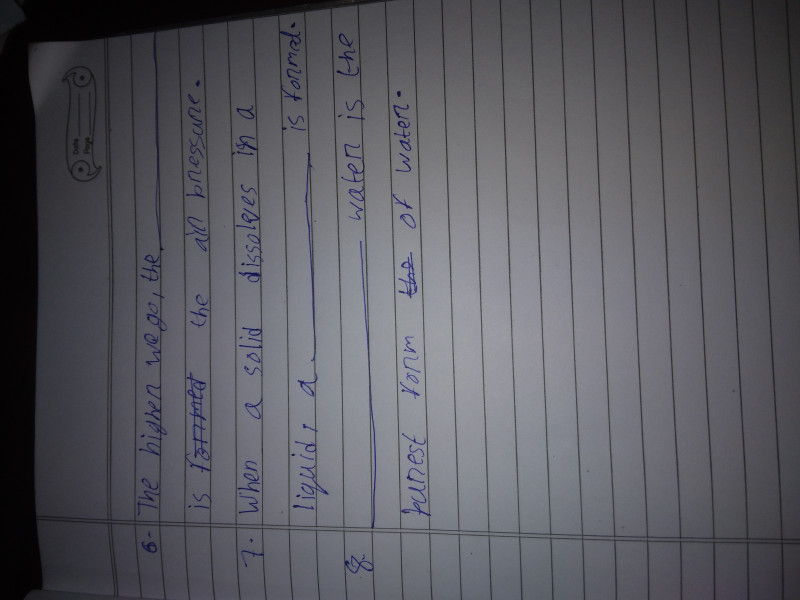 Date
Page
6- The higher we go, the ________
is formed the air pressure.
7. When a solid dissolves in a
liquid, a ________ is formed.
8. ________ water is the
purest form the of water.